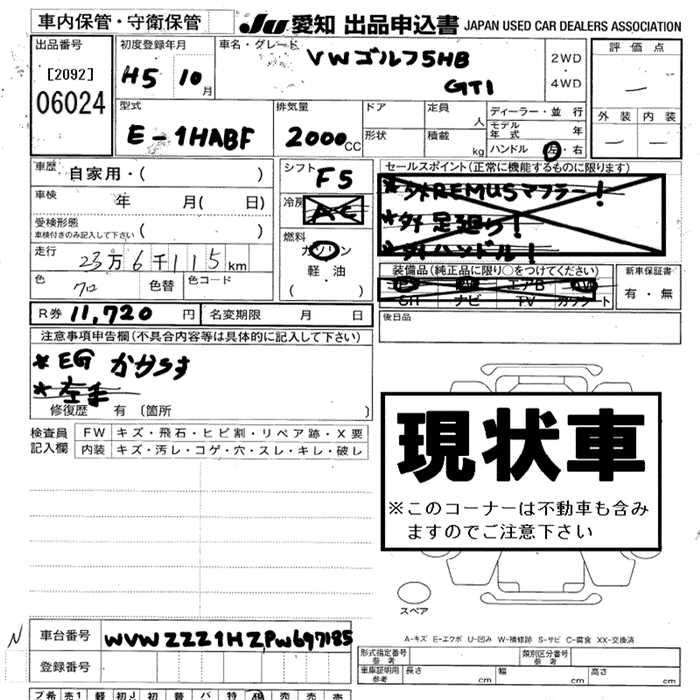 車内保管・守衛保管
JU 愛知 出品申込書 JAPAN USED CAR DEALERS ASSOCIATION
出品番号
[2092]
06024
初度登録年月
H5 10月
車名・グレード
VWゴルフ5HB
GTI
2WD
・
4WD
評価点
—
外装 内装
— —
型式
E-1HABF
排気量
2000CC
ドア
定員
名
形状
積載
kg
ディーラー・並行
モデル年式 年
ハンドル 左・右
車歴
自家用・( )
車検
年 月( 日)
受検形態
車検付きのみ記入して下さい ( )
走行
23万6千115km
色
クロ
色替
色コード
シフト
F5
冷房
AC
燃料
ガソリン
軽・油
( ・ )
セールスポイント(正常に機能するものに限ります)
*社外REMUSマフラー!
*社外足廻り!
*社外ハンドル!
装備品(純正品に限り○をつけてください)
エアB
ナビ TV カワシート
新車保証書
有・無
R券 11,720円
名変期限 月 日
後日品
注意事項申告欄(不具合内容等は具体的に記入して下さい)
*EGかからず
*左手
修復歴 有〔箇所 〕
検査員
記入欄
FW キズ・飛石・ヒビ割・リペア跡・X要
内装 キズ・汚レ・コゲ・穴・スレ・キレ・破レ
現状車
※このコーナーは不動車も含み
ますのでご注意下さい
スペア
A-キズ E-エクボ U-凹み W-補修跡 S-サビ C-腐食 XX-交換済
N
車台番号
WVWZZZ1HZPW697185
登録番号
形式指定番号
参考
類別区分番号
参考
車庫証明用
参考
長さ cm
幅 cm
高さ cm